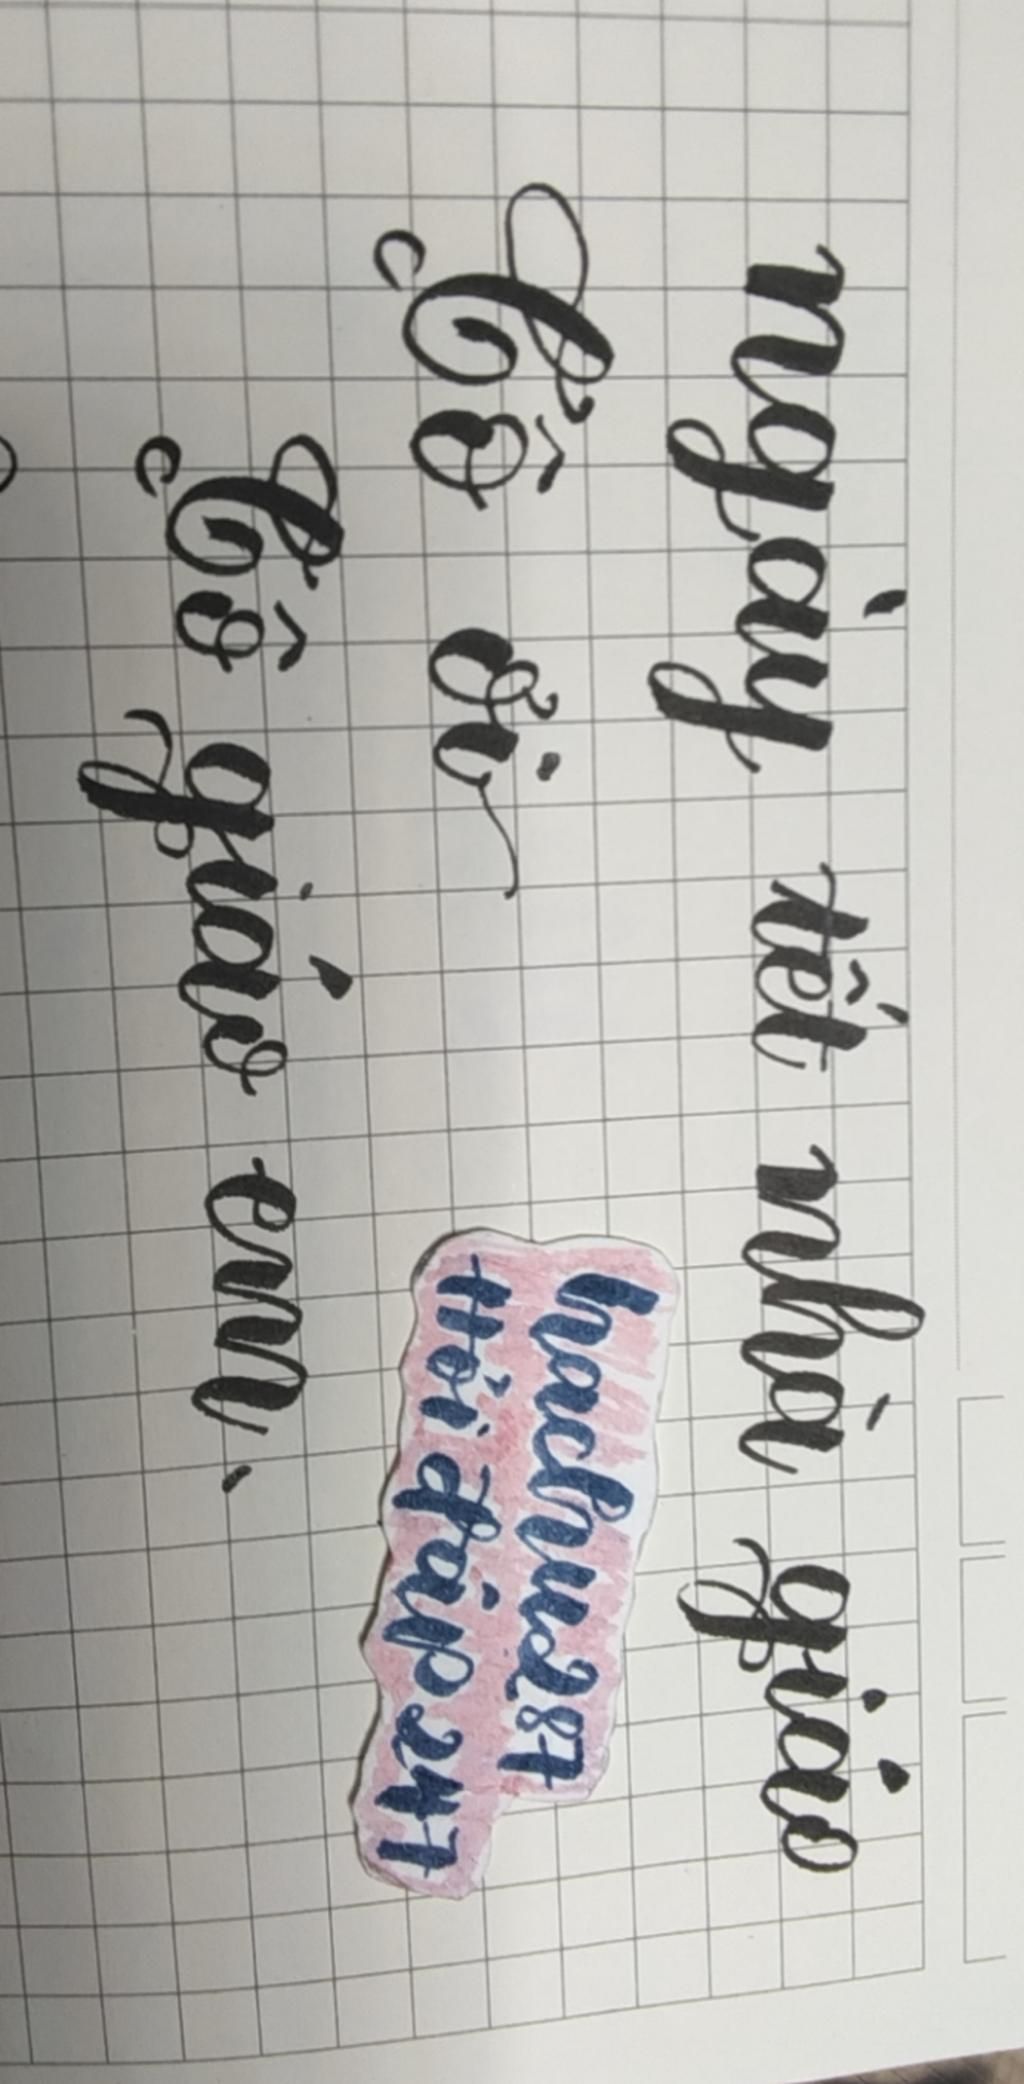 ngày tết nhà giáo
Cô ơi
hachu287
Hỏi đáp 247
Cô giáo em.